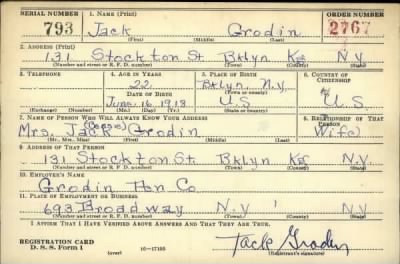 SERIAL NUMBER 1. NAME (Print) ORDER NUMBER
793 Jack Grodin 2767
(First) (Middle) (Last)
2. ADDRESS (Print)
131 Stockton St. Bklyn Ks N.Y.
(Number and street or R. F. D. number) (Town) (County) (State)
3. TELEPHONE 4. AGE IN YEARS 5. PLACE OF BIRTH 6. COUNTRY OF CITIZENSHIP
22 Bklyn, N.Y.
DATE OF BIRTH (Town or county)
June 16 1918 U.S. U.S.
(Exchange) (Number) (Mo.) (Day) (Yr.) (State or country)
7. NAME OF PERSON WHO WILL ALWAYS KNOW YOUR ADDRESS 8. RELATIONSHIP OF THAT PERSON
Mrs. Jack (Bessie) Grodin Wife
(Mr., Mrs., Miss) (First) (Middle) (Last)
9. ADDRESS OF THAT PERSON
131 Stockton St. Bklyn Ks N.Y.
(Number and street or R. F. D. number) (Town) (County) (State)
10. EMPLOYER'S NAME
Grodin Pen Co
11. PLACE OF EMPLOYMENT OR BUSINESS
693 Broadway N.Y. N.Y.
(Number and street or R. F. D. number) (Town) (County) (State)
I AFFIRM THAT I HAVE VERIFIED ABOVE ANSWERS AND THAT THEY ARE TRUE.
REGISTRATION CARD
D. S. S. Form 1 (over) 16—17105 Jack Grodin
(Registrant's signature)